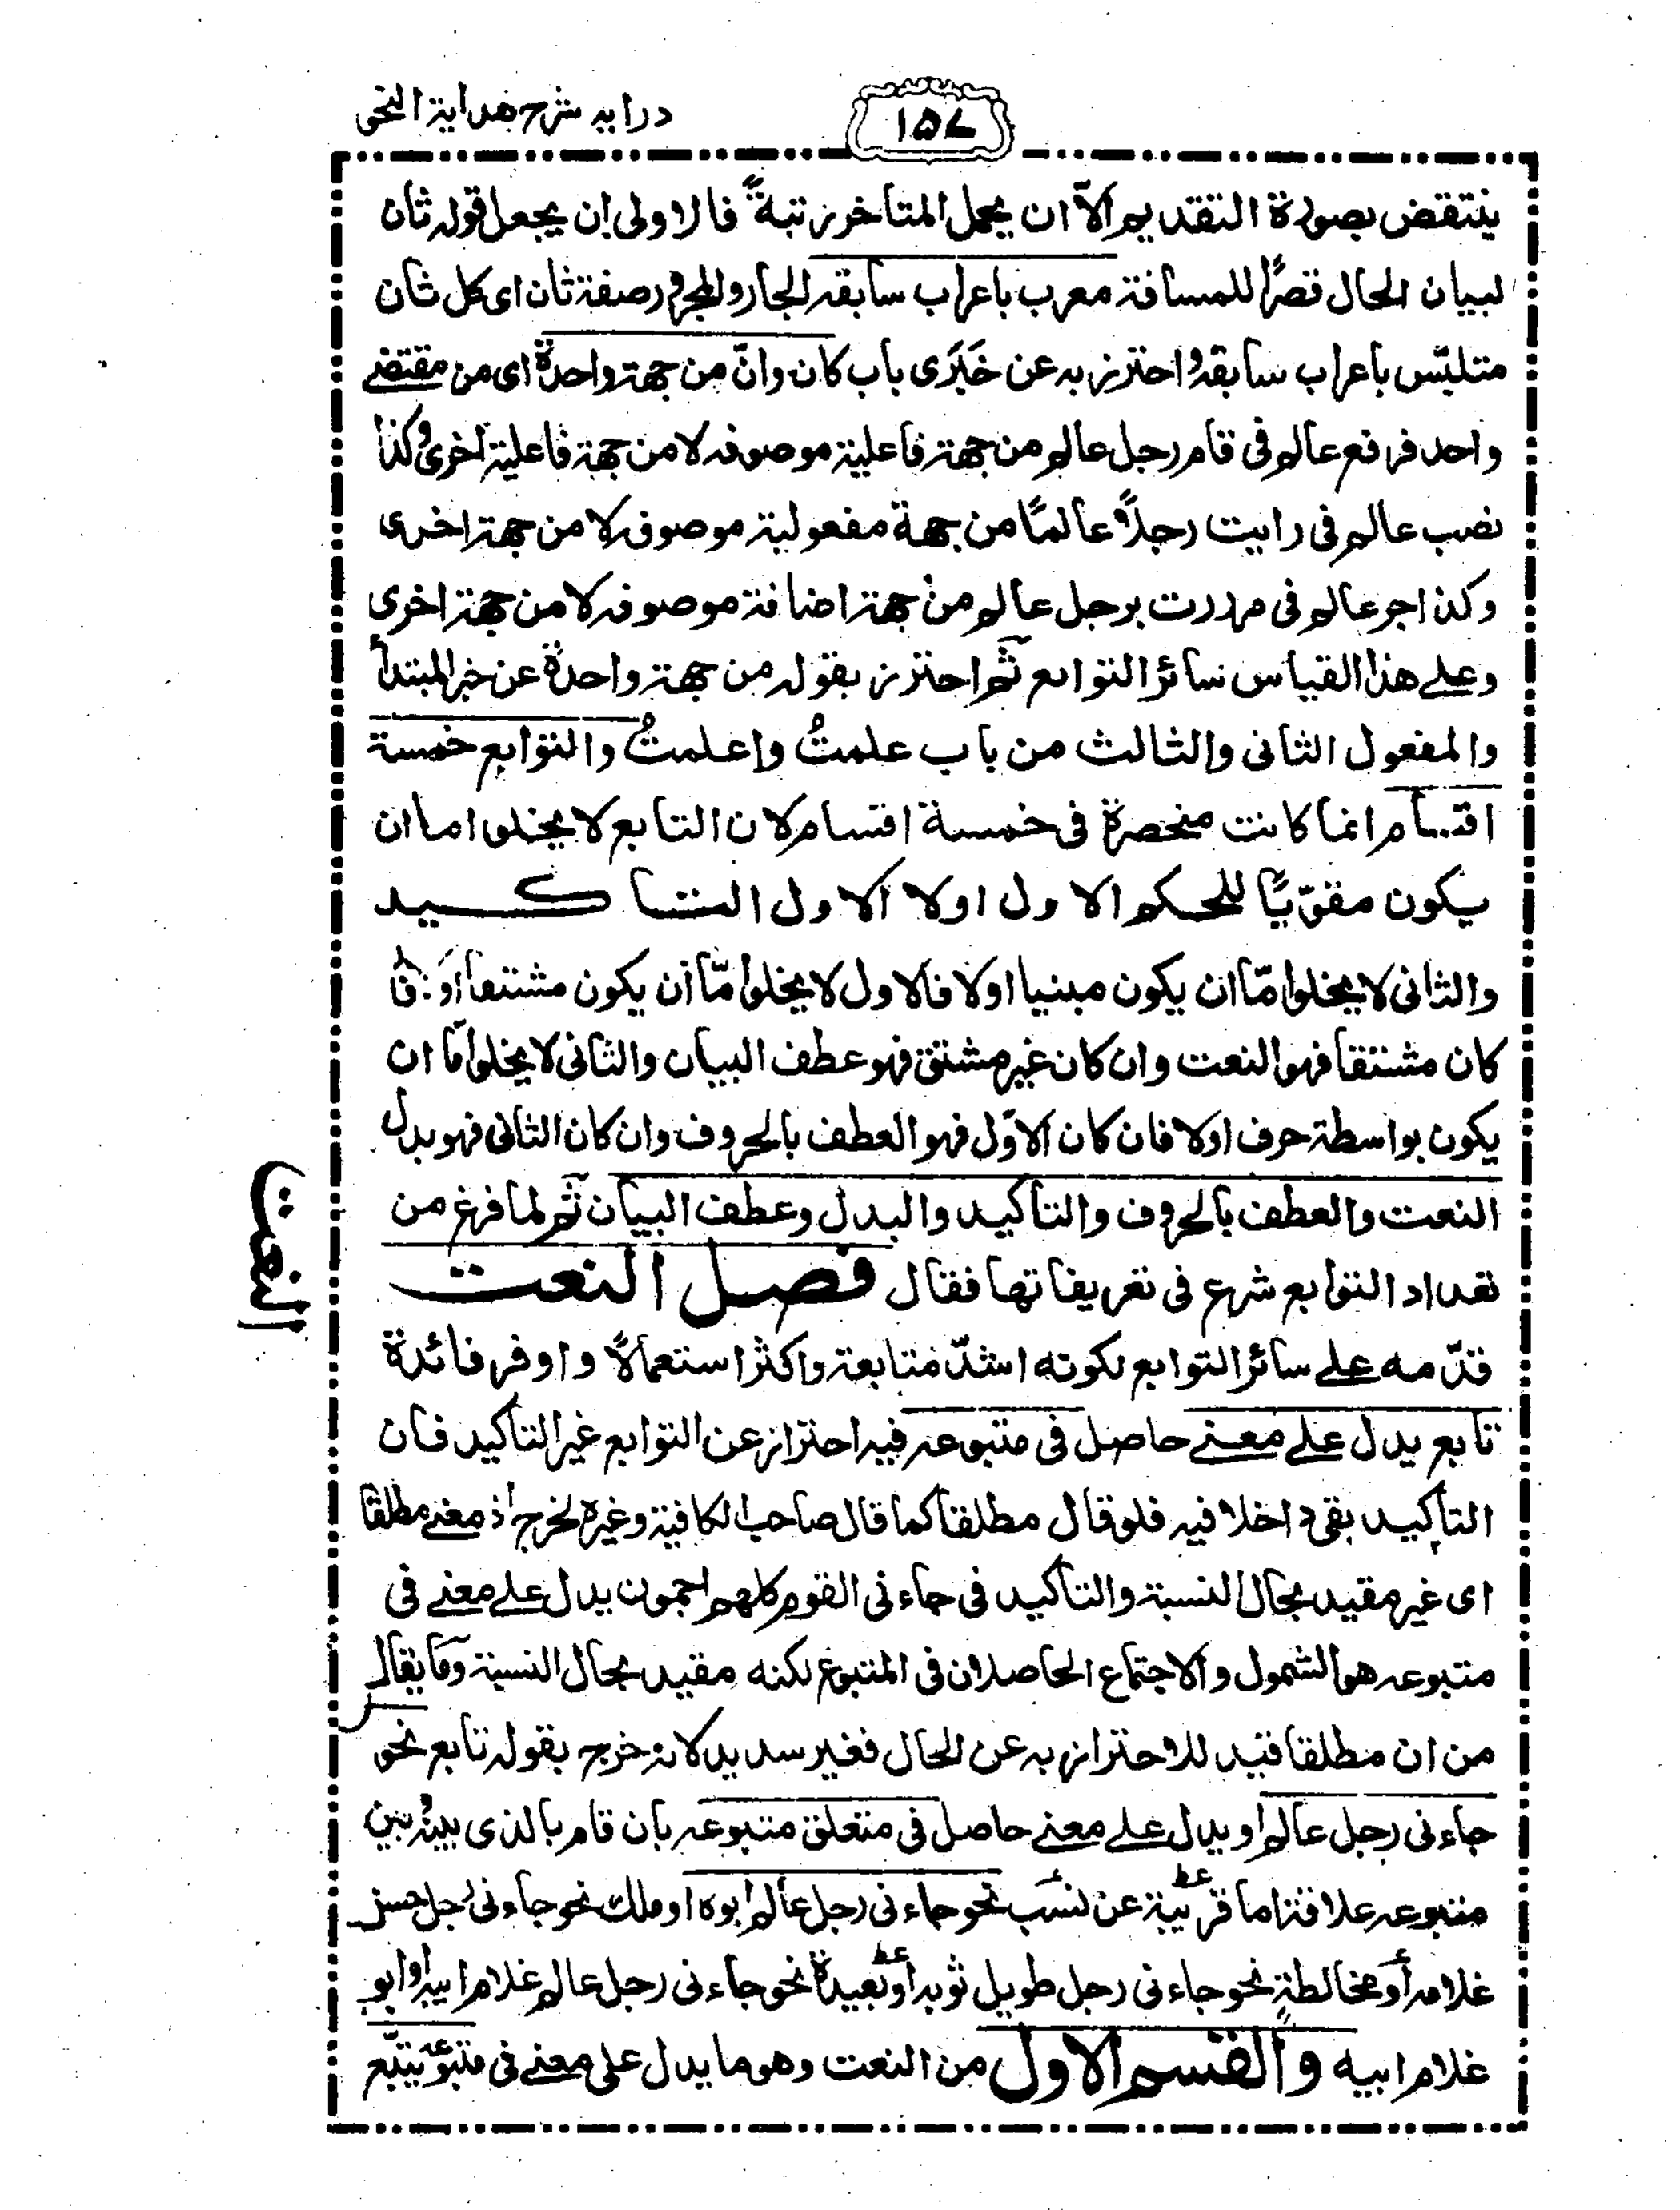 درایه شرح هدایة النحو
۱۵۷
ینتقض بصورة التقدیم الاّ ان یحمل المتاخر رتبةً فالاولی ان یجعل قوله ثان
لبیان الحال قصرًا للمسافة معرب باعراب سابقه الجار والمجرور صفة ثان ای کل ثان
متلبّس باعراب سابقه واحترز به عن خَبَرَی باب کان وانّ من جهة واحدة ای من مقتضے
واحد فرفع عالم فی قام رجل عالم من جهة فاعلیة موصوفه لا من جهة فاعلیة اخری وکذا
نصب عالم فی رایت رجلاً عالمًا من جهة مفعولیة موصوفه لا من جهة اخری
وکذا جر عالم فی مررت برجل عالم من جهة اضافة موصوفه لا من جهة اخری
وعلے هذا القیاس سائر التوابع ثم احترز بقوله من جهة واحدة عن خبر المبتدأ
والمفعول الثانی والثالث من باب علمتُ واعلمتُ والتوابع خمسة
اقسام انما کانت منحصرة فی خمسة اقسام لان التابع لا یخلوا اما ان
یکون مقوّیًا للحکم الاول اولا الاول التاکید
والثانی لا یخلوا امّا ان یکون مبنیا اولا فالاول لا یخلوا امّا ان یکون مشتقا او
کان مشتقا فهو النعت وان کان غیر مشتق فهو عطف البیان والثانی لا یخلوا امّا ان
یکون بواسطة حرف اولا فان کان الاوّل فهو العطف بالحروف وان کان الثانی فهو بدل
النعت والعطف بالحروف والتاکید والبدل وعطف البیان ثم لما فرغ من
تعداد التوابع شرع فی تعریفاتها فقال فصل النعت
النعت
قدّمه علے سائر التوابع لکونه اشدّ متابعة واکثر استعمالاً واوفر فائدة
تابع یدل علے معنے حاصل فی متبوعه فیه احتراز عن التوابع غیر التاکید فان
التاکید بقی داخلا فیه فلو قال مطلقا کما قال صاحب الکافیة وغیره لخرج اذ معنے مطلقا
ای غیر مقید بحال النسبة والتاکید فی جاءنی القوم کلهم اجمعون یدل علے معنے فی
متبوعه هو الشمول والاجتماع الحاصلان فی المتبوع لکنه مقید بحال النسبة وما یقال
من ان مطلقا قید للاحتراز به عن الحال فغیر سدید لانه خرج بقوله تابع نحو
جاءنی رجل عالم او یدل علے معنے حاصل فی متعلق متبوعه بان قام بالذی بینه وبین
متبوعه علاقة اما قریبة عن نسب نحو جاءنی رجل عالم ابوه او ملك نحو جاءنی رجل حسن
غلامه أو مخالطةٍ نحو جاءنی رجل طویل ثوبه أو بعیدة نحو جاءنی رجل عالم غلام ابیه او ابو
غلام ابیه والقسم الاول من النعت وهو ما یدل علی معنے فی متبوعه یتبع